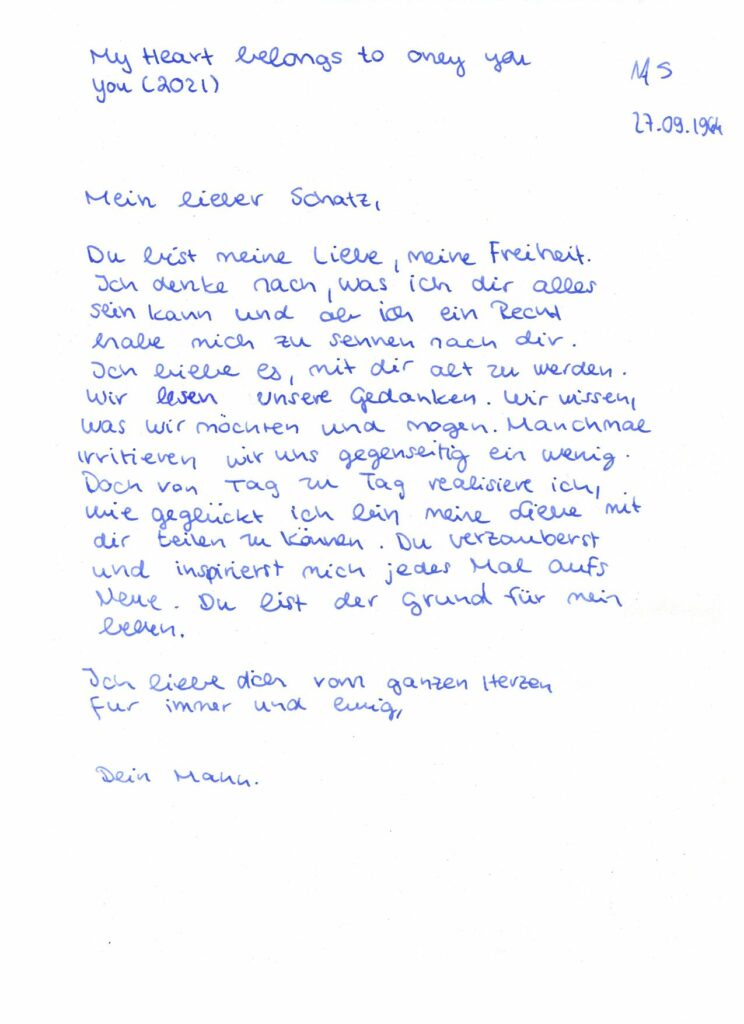 My Heart belongs to oney you
you (2021)
MS
27.09.1964
Mein lieber Schatz,
Du bist meine Liebe, meine Freiheit.
Ich denke nach, was ich dir alles
sein kann und ob ich ein Recht
habe mich zu sehnen nach dir.
Ich liebe es, mit dir alt zu werden.
Wir lesen unsere Gedanken. Wir wissen,
was wir möchten und mögen. Manchmal
irritieren wir uns gegenseitig ein wenig.
Doch von Tag zu Tag realisiere ich,
wie geglückt ich bin meine Liebe mit
dir teilen zu können. Du verzauberst
und inspirierst mich jedes Mal aufs
Neue. Du bist der Grund für mein
Leben.
Ich liebe dich vom ganzen Herzen
für immer und ewig,
Dein Mann.